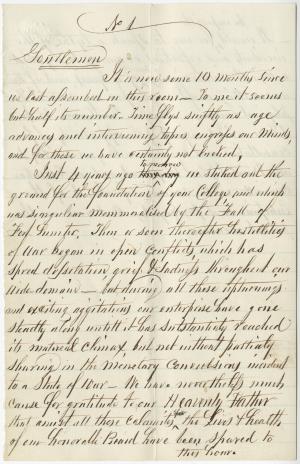 No 1
Gentlemen
It is now some 10 Months since
we last assembled in this room — To me it seems
but half its number. Time flys swiftly as age
advances and intervening topics engross our Minds,
and for these we have certainly not lacked,
to morrow
Just 4 years ago we staked out the
ground for the foundation of your College and which
was singularly memorialised by the Fall of
Fort Sumter. Then or soon thereafter Hostilities
of War began in open Conflict which has
spread desolation grief & Sadness throughout our
wide domain — but during all these upturnings
and existing agitations our enterprise have gone
steadily along untill it has substantialy reached
its material Climax, but not without partialy
sharing in the Monetary Convulsions incident
to a State of War — We have nevertheless much
cause for gratitude to our Heavenly Father
that amidst all these Calamities the Lives & health
of our Honorable Board have been spared to
this hour.